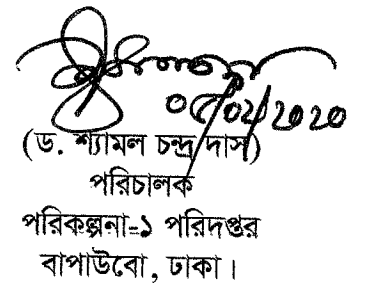 ০৫/০২/২০২০
(ড. শ্যামল চন্দ্র দাস)
পরিচালক
পরিকল্পনা-১ পরিদপ্তর
বাপাউবো, ঢাকা।